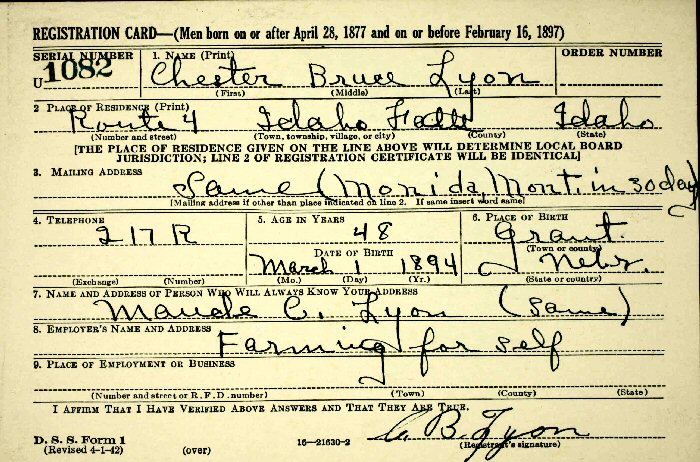 REGISTRATION CARD—(Men born on or after April 28, 1877 and on or before February 16, 1897)
SERIAL NUMBER 1. NAME (Print) ORDER NUMBER
U 1082 Chester Bruce Lyon
(First) (Middle) (Last)
2 PLACE OF RESIDENCE (Print)
Route 4 Idaho Falls Idaho
(Number and street) (Town, township, village, or city) (County) (State)
[THE PLACE OF RESIDENCE GIVEN ON THE LINE ABOVE WILL DETERMINE LOCAL BOARD
JURISDICTION; LINE 2 OF REGISTRATION CERTIFICATE WILL BE IDENTICAL]
3. MAILING ADDRESS
Same (Monida, Mont. in 30 days
[Mailing address if other than place indicated on line 2. If same insert word same]
4. TELEPHONE 5. AGE IN YEARS 6. PLACE OF BIRTH
217 R 48 Grant
(Town or county)
DATE OF BIRTH
March 1 1894 Nebr.
(Exchange) (Number) (Mo.) (Day) (Yr.) (State or country)
7. NAME AND ADDRESS OF PERSON WHO WILL ALWAYS KNOW YOUR ADDRESS
Maude C. Lyon (same)
8. EMPLOYER'S NAME AND ADDRESS
Farming for self
9. PLACE OF EMPLOYMENT OR BUSINESS
(Number and street or R. F. D. number) (Town) (County) (State)
I AFFIRM THAT I HAVE VERIFIED ABOVE ANSWERS AND THAT THEY ARE TRUE.
D. S. S. Form 1
(Revised 4-1-42) (over) 16—21630-2 C. B. Lyon
(Registrant's signature)